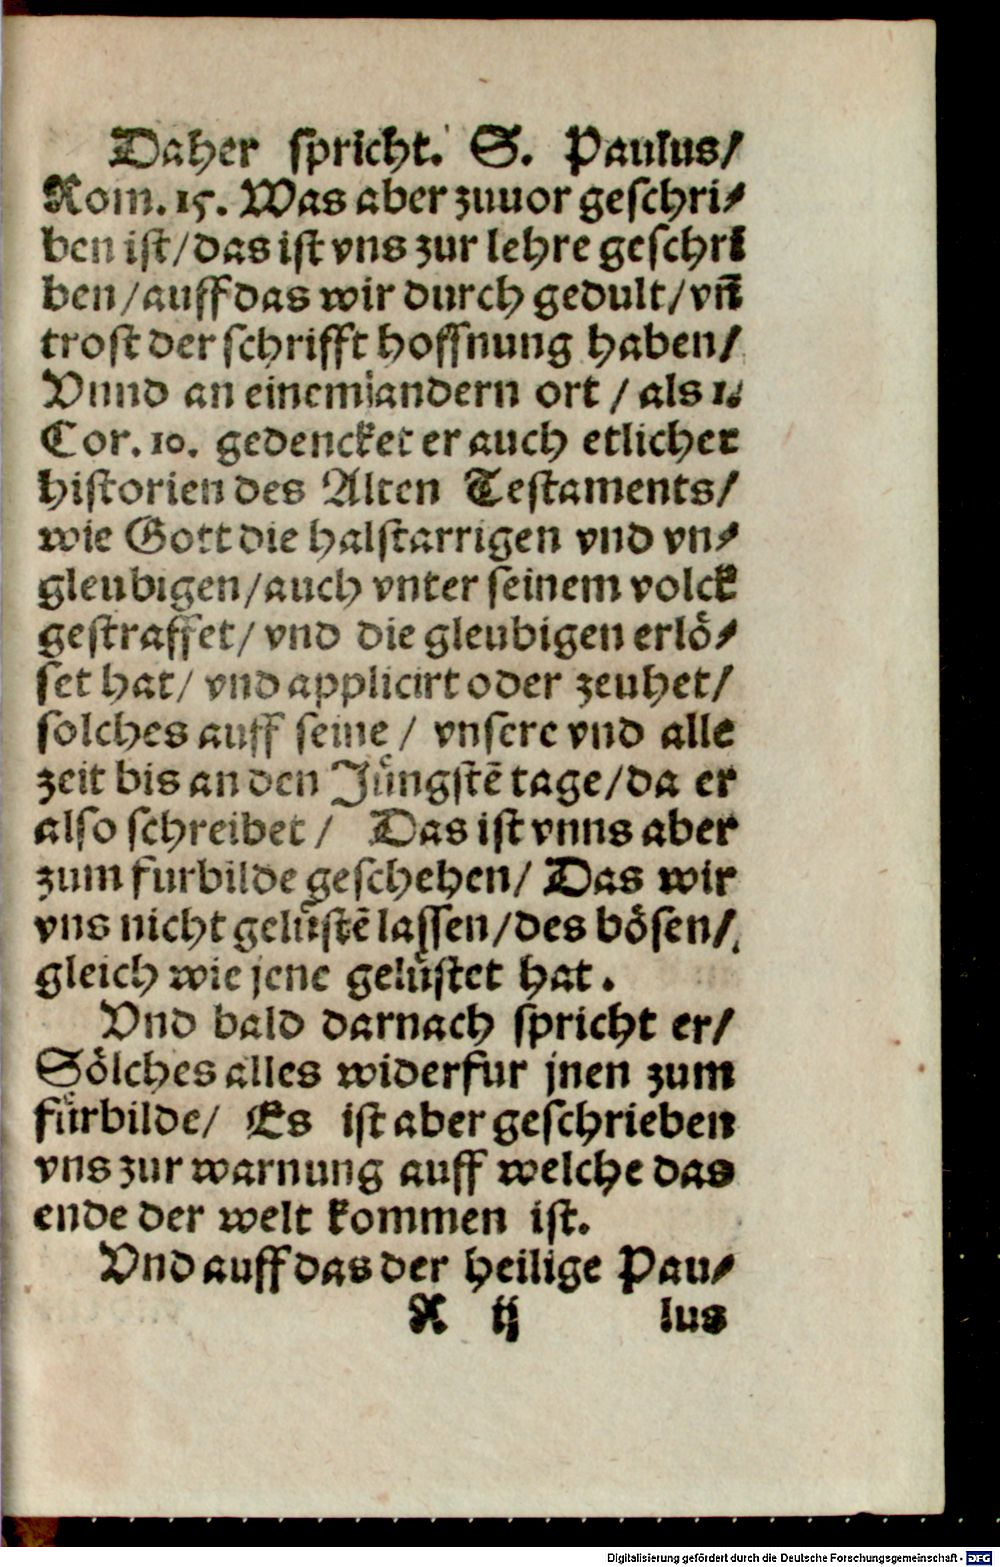 Daher ſpricht. S. Paulus/
Rom. 15. Was aber zuuor geſchri⸗
ben iſt/das iſt vns zur lehre geſchri
ben/auff das wir durch gedult/vn̄
troſt der ſchrifft hoffnung haben/
Vnnd an einem andern ort / als 1.
Cor. 10. gedencket er auch etlicher
hiſtorien des Alten Teſtaments/
wie Gott die halſtarrigen vnd vn⸗
gleubigen/auch vnter ſeinem volck
geſtraffet/ vnd die gleubigen erlöͤ⸗
ſet hat/ vnd applicirt oder zeuhet/
ſolches auff ſeine / vnſere vnd alle
zeit bis an den Juͤngſtē tage/da er
alſo ſchreibet / Das iſt vnns aber
zum furbilde geſchehen/ Das wir
vns nicht geluͤſtē laſſen/des boͤſen/
gleich wie jene geluͤſtet hat.
Vnd bald darnach ſpricht er/
Soͤlches alles widerfur jnen zum
fuͤrbilde/ Es iſt aber geſchrieben
vns zur warnung auff welche das
ende der welt kommen iſt.
Vnd auff das der heilige Pau⸗
R ij lus
Digitalisierung gefördert durch die Deutsche Forschungsgemeinschaft - DFG